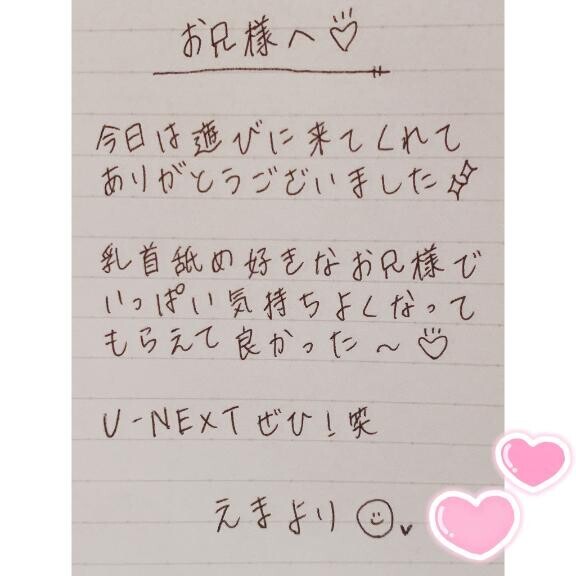 お兄様へ♡
今日は遊びに来てくれて
ありがとうございました✨
乳首舐め好きなお兄様で
いっぱい気持ちよくなって
もらえて良かった〜♡
U-NEXTぜひ！笑
えまより☺♥